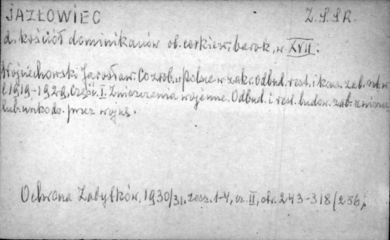 JAZŁOWIEC Z.S.S.R.
d. kościół dominikanów ob. cerkiew, barok, w XVII.
Wojciechowski Jarosław. Co zrob. w Polsce w zak. odbud. rest. i kons. zab. od w.
1919-1929. Część I. Zniszczenia wojenne. Odbud. i rest. budow. zab. zniszcz.
lub uszkodz. przez wojnę.
Ochrona Zabytków, 1930/31. zesz. 1-4, cz. II, str. 243-318/256/